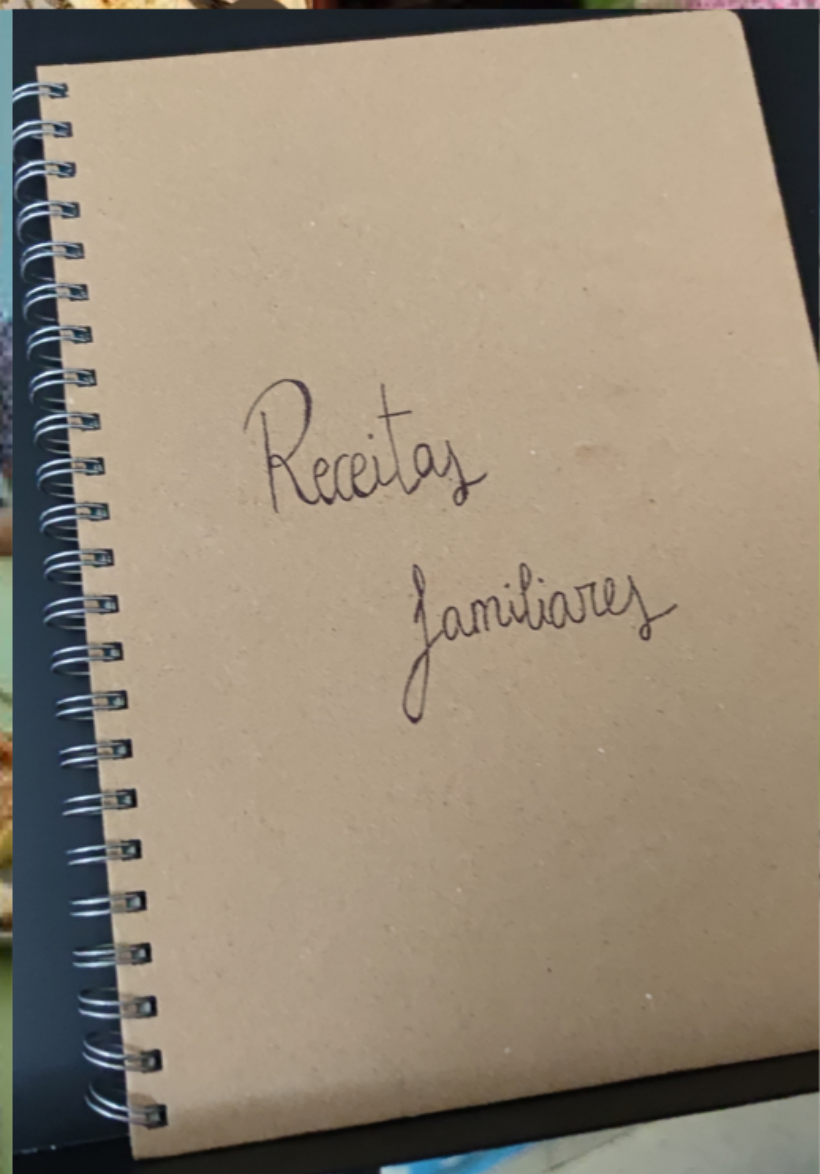 Receitas
familiares